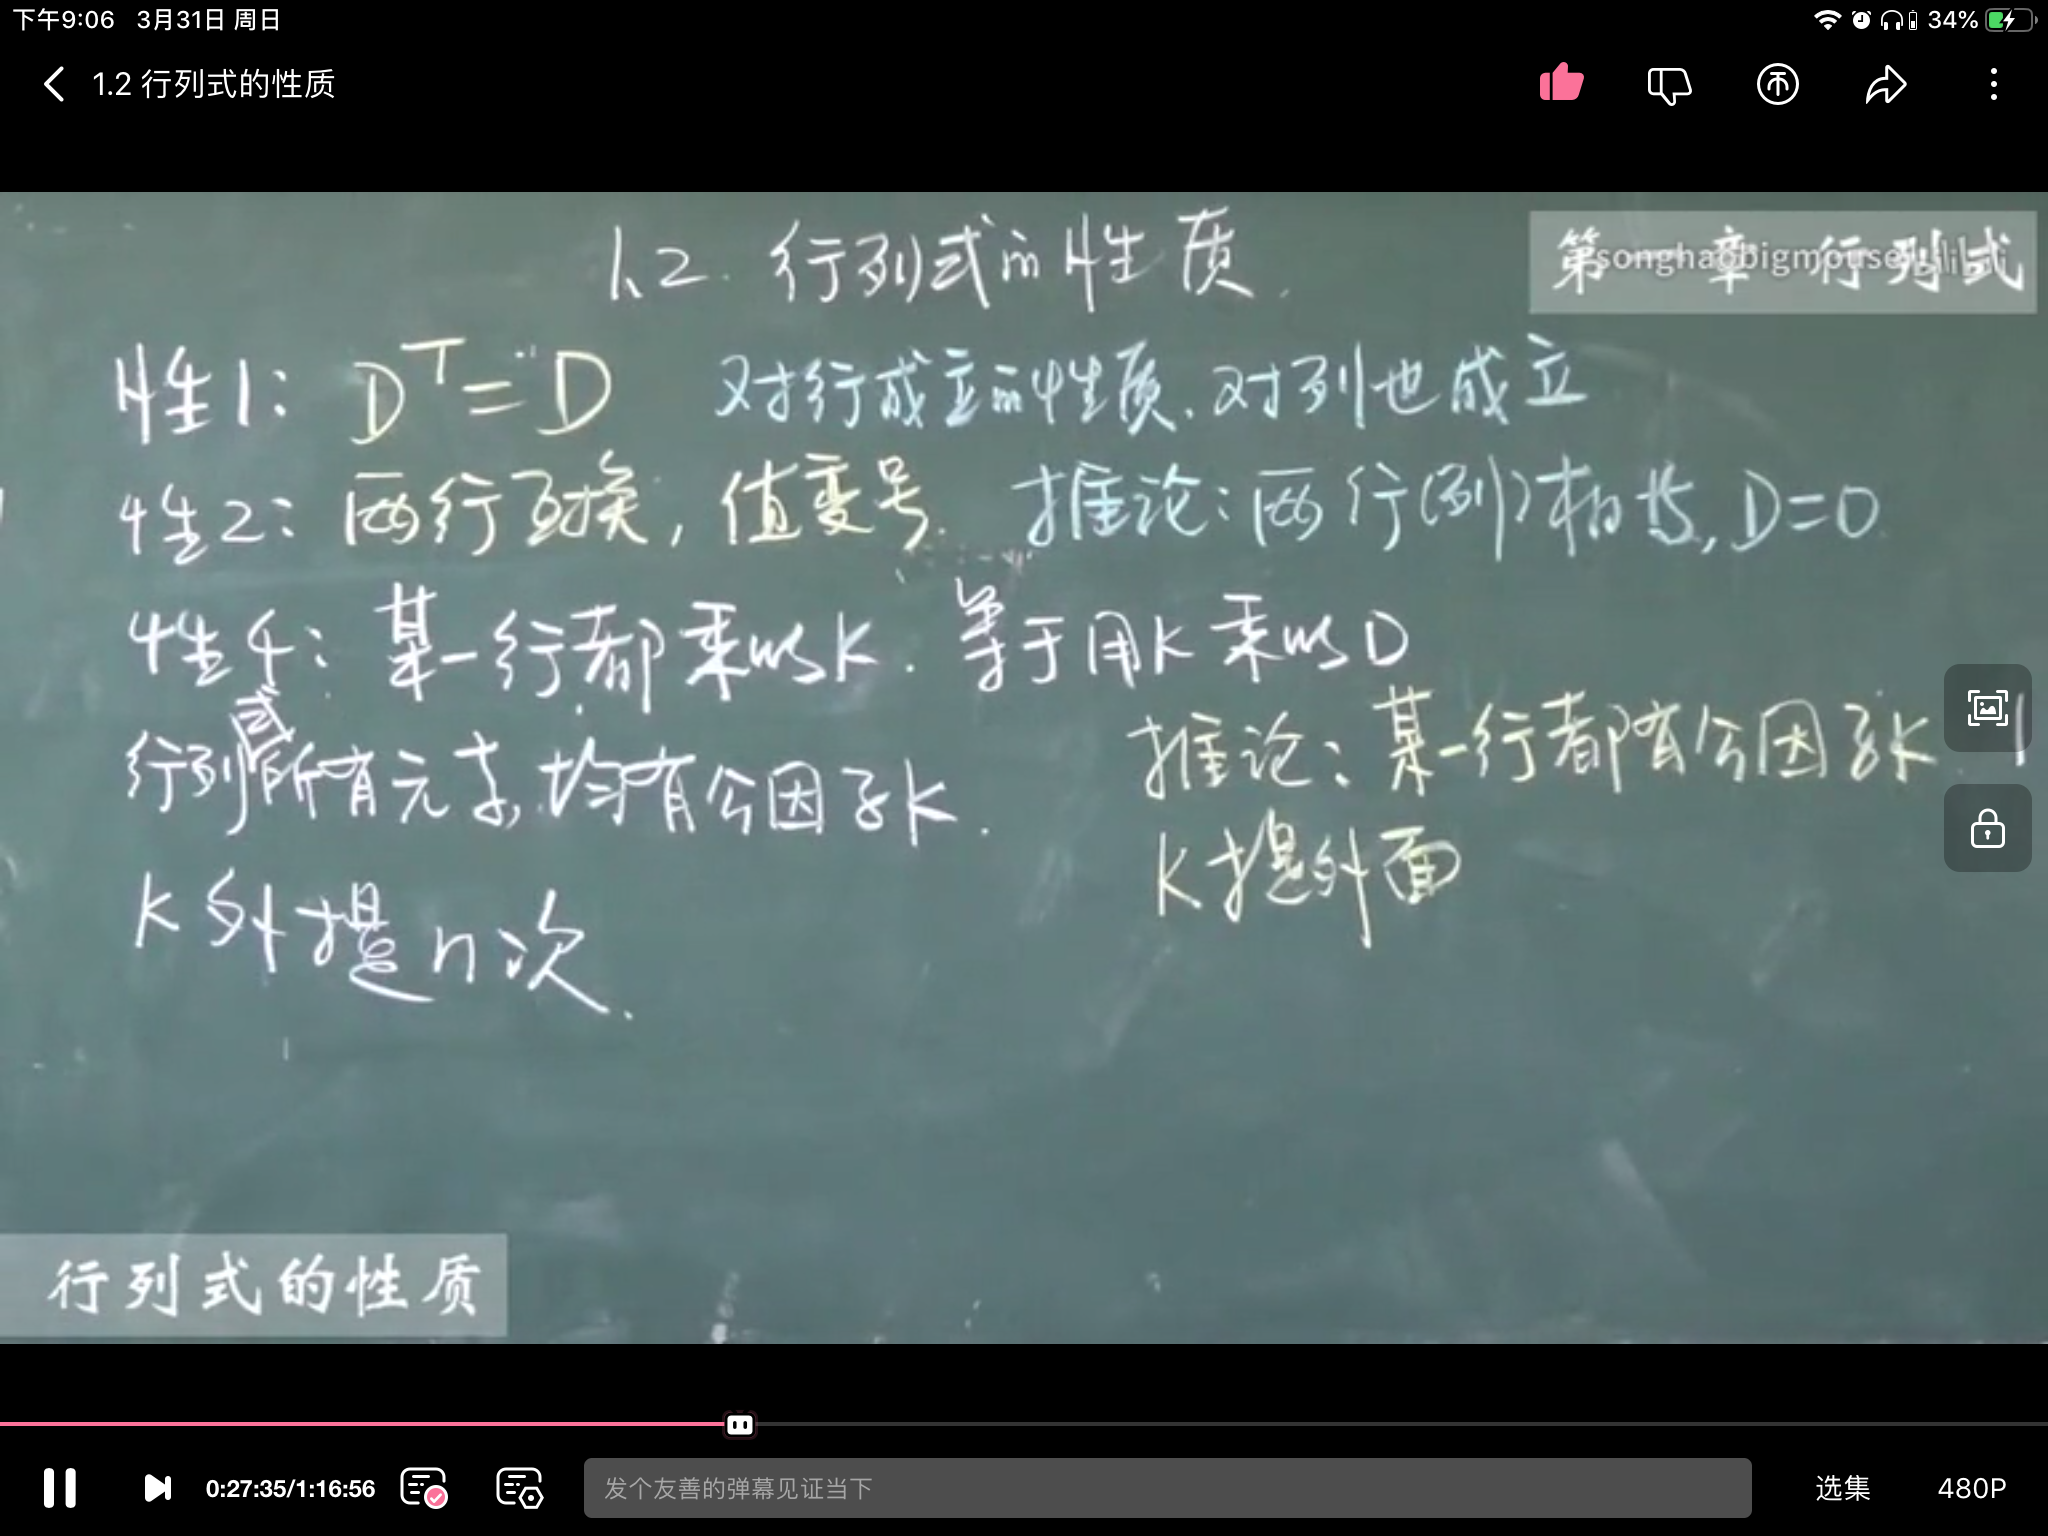 下午9:06 3月31日 周日
34%
1.2 行列式的性质
1.2. 行列式的性质.
第一章 行列式
songhaobigmouse
bilibili
性1: Dᵀ=D 对行成立的性质,对列也成立
性2: 两行互换, 值变号. 推论: 两行(列)相等, D=0
性4: 某一行都乘以K. 等于用K乘以D
推论: 某一行都有公因子K
行列式所有元素,均有公因子K.
K提外面
K外提n次.
行列式的性质
0:27:35/1:16:56
发个友善的弹幕见证当下
选集
480P